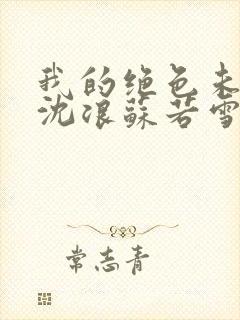 我的绝色未
沈浪苏若雪
常志青